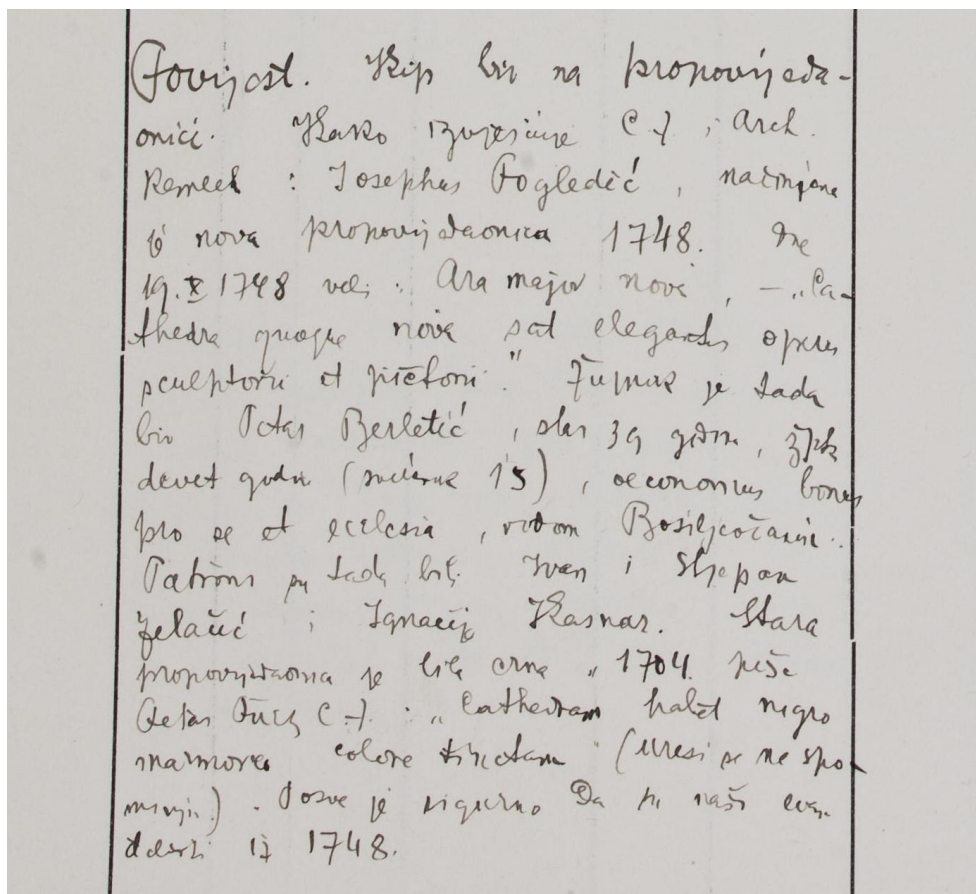 Povijest. Kip bio na propovijeda-
onici. Kako izvješćuje C. J. i Arch.
Remech : Josephus Pogledić , načinjena
je nova propovijedaonica 1748. Dne
19. X 1748 veli : Ara major nova , – „Ca-
thedra quoque nova sat elegantis operis
sculptorii et pictorii." Župnik je tada
bio Petar Berletić , star 39 godina , župnik
devet godina (svećenik 15) , oeconomus bonus
pro se et ecclesia , rodom Bosiljevčanin.
Patroni su tada bili Ivan i Stjepan
Jelačić i Ignacij Kasnar. Stara
propovijedaonica je bila crna „ 1704. piše
Petar C. J. : „Cathedram habet nigro
marmoreo colore tinctam" (Uresi se ne spo-
minju.) . Posve je sigurno Da su naši evan-
đelisti iz 1748.